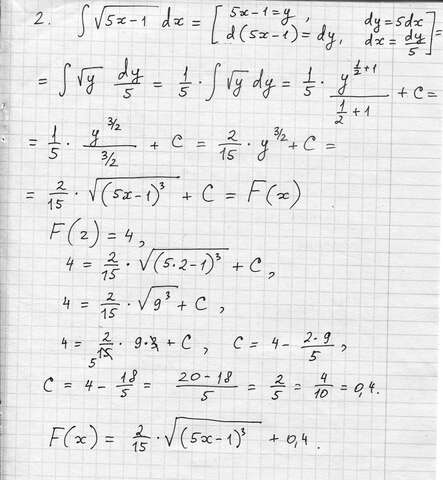 2. ∫ √(5x-1) dx = [5x-1=y, dy=5dx
d(5x-1)=dy, dx=dy/5] =
= ∫ √y dy/5 = 1/5 · ∫ √y dy = 1/5 · y^(1/2+1)/(1/2+1) + C =
= 1/5 · y^(3/2)/(3/2) + C = 2/15 · y^(3/2) + C =
= 2/15 · √((5x-1)^3) + C = F(x)
F(2) = 4,
4 = 2/15 · √((5·2-1)^3) + C,
4 = 2/15 · √(9^3) + C,
4 = 2/15 5 · 9·3 + C, C = 4 - 2·9/5,
C = 4 - 18/5 = (20-18)/5 = 2/5 = 4/10 = 0,4.
F(x) = 2/15 · √((5x-1)^3) + 0,4.